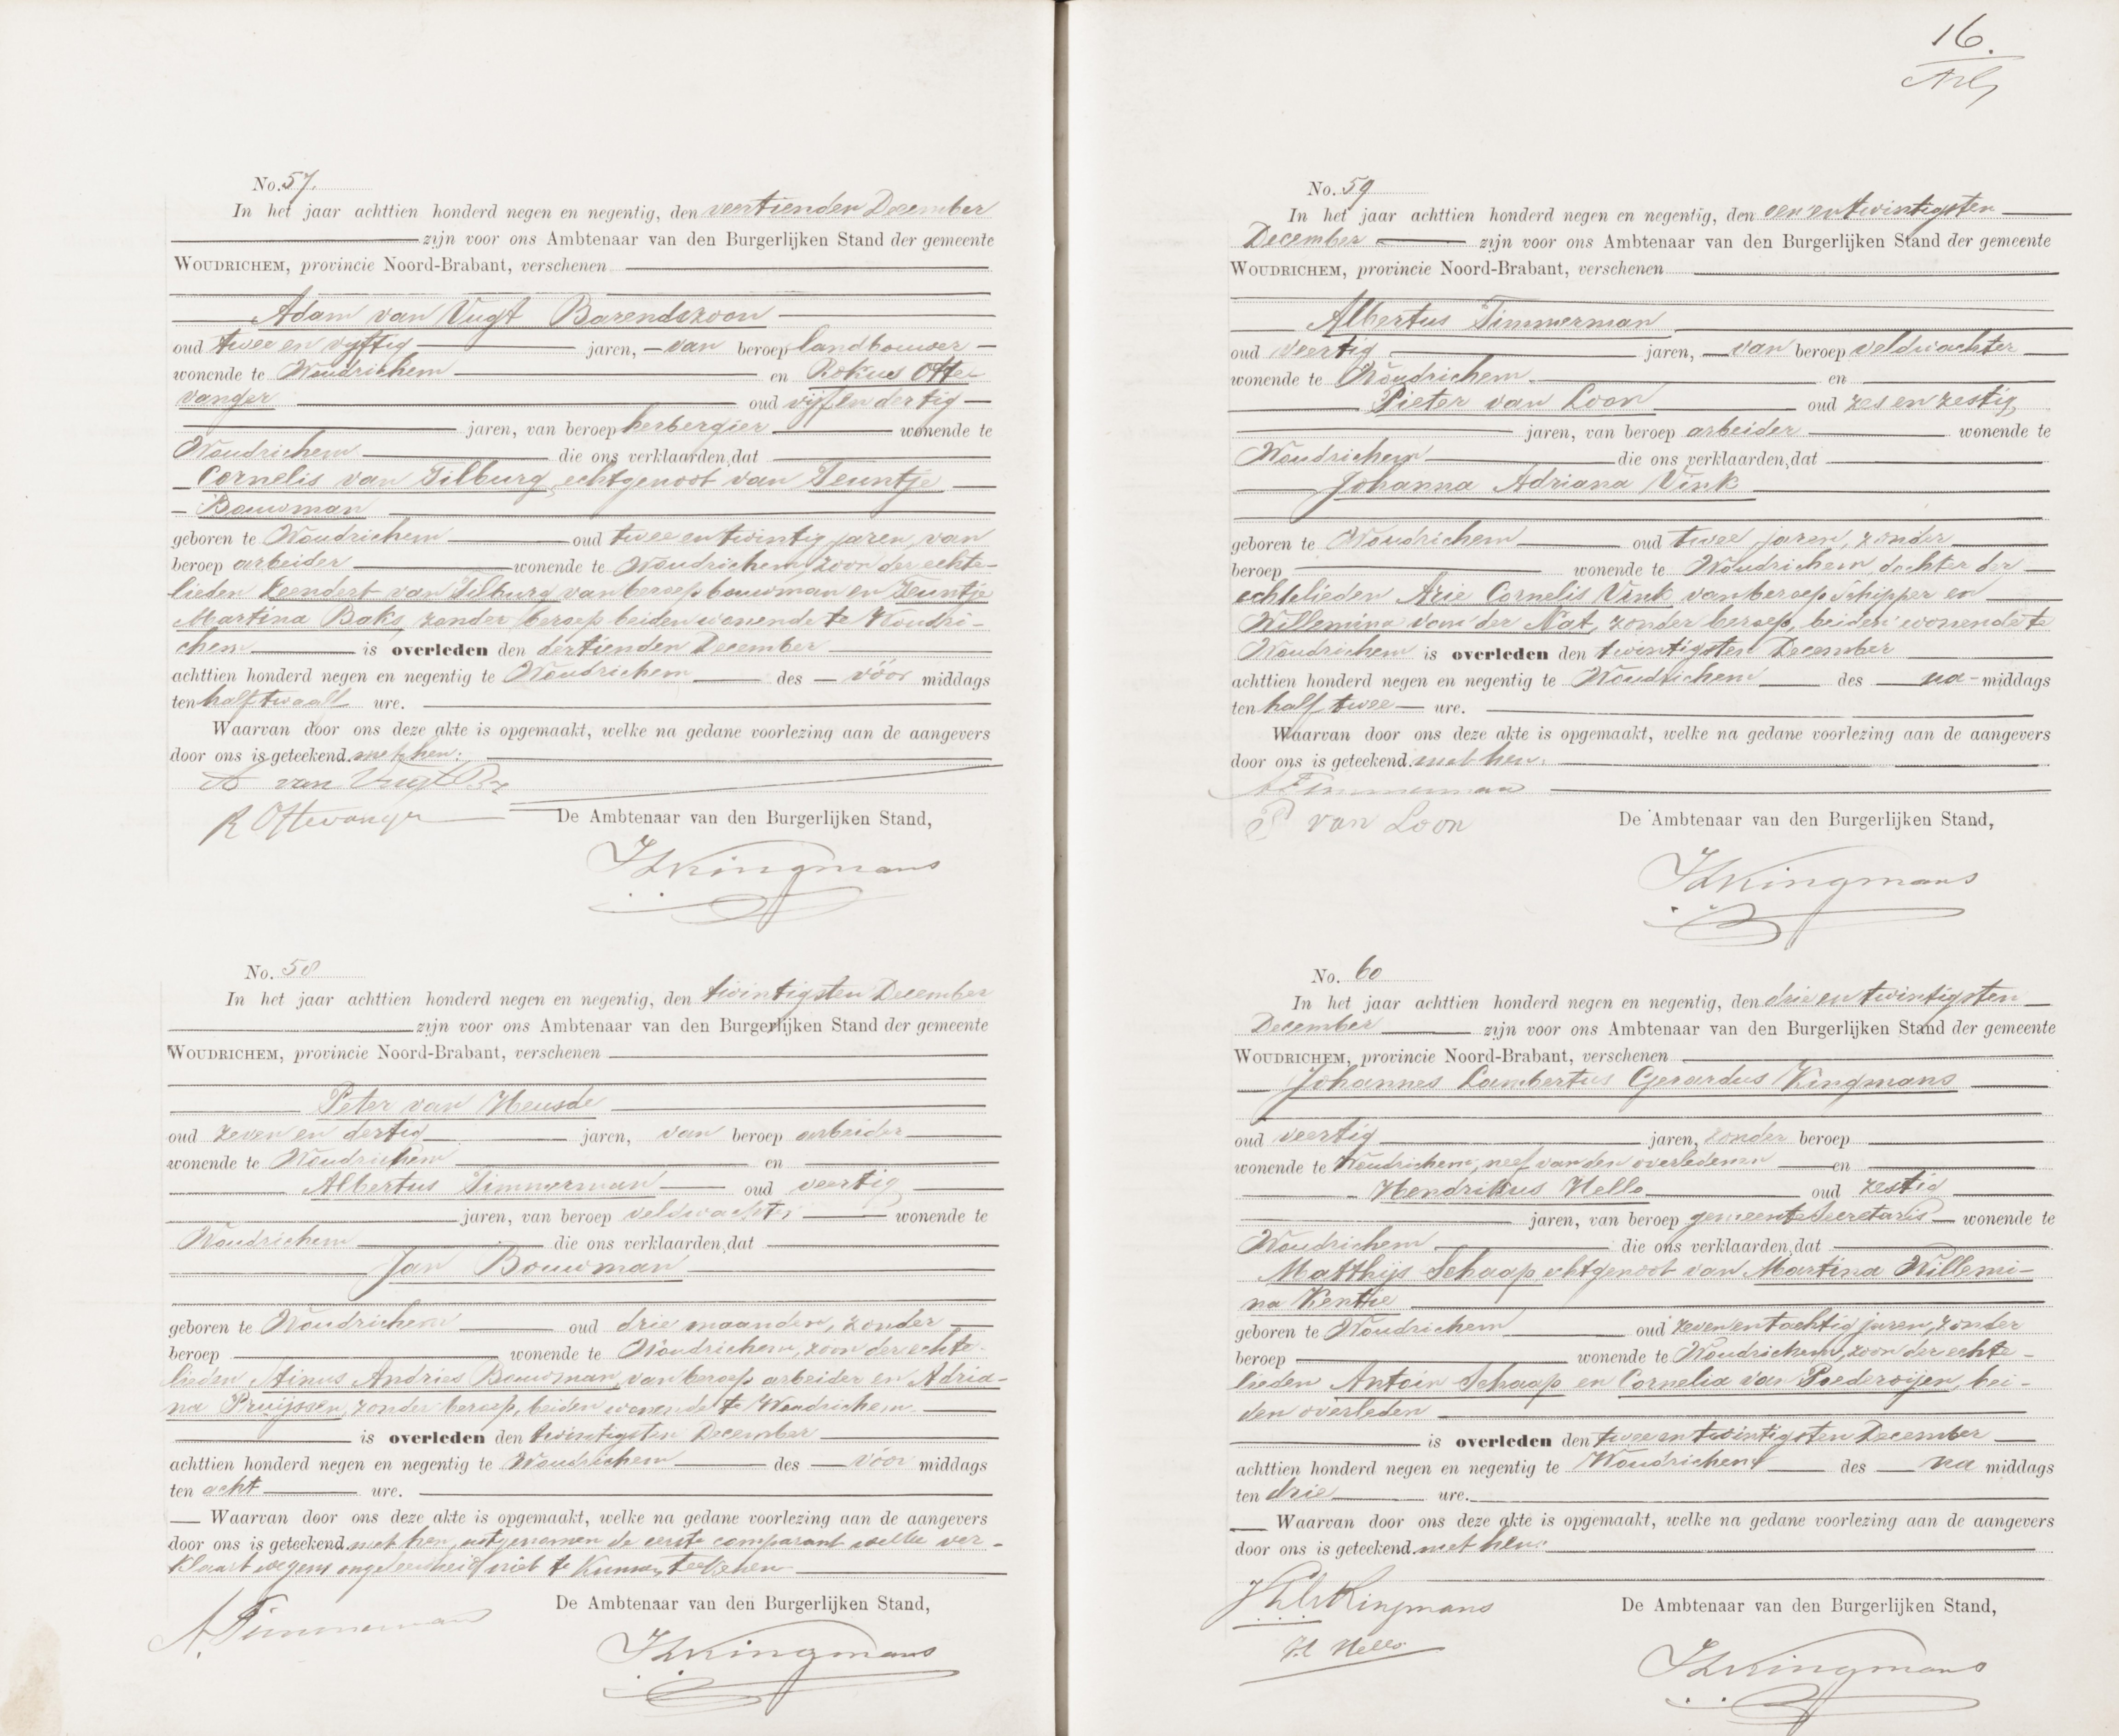 No. 57.
In het jaar achttien honderd negen en negentig, den veertienden December
zijn voor ons Ambtenaar van den Burgerlijken Stand der gemeente
WOUDRICHEM, provincie Noord-Brabant, verschenen
Adam van Vugt Barendszoon
oud twee en vijftig jaren, van beroep landbouwer
wonende te Woudrichem en Rokus Otte-
vanger oud vijf en dertig
jaren, van beroep herbergier wonende te
Woudrichem die ons verklaarden, dat
Cornelis van Tilburg, echtgenoot van Teuntje
Bouwman
geboren te Woudrichem oud twee en twintig jaren, van
beroep arbeider wonende te Woudrichem, zoon der echte-
lieden Leendert van Tilburg van beroep bouwman en Teuntje
Martina Baks, zonder beroep beiden wonende te Woudri-
chem is overleden den dertienden December
achttien honderd negen en negentig te Woudrichem des vóór middags
ten half twaalf ure.
Waarvan door ons deze akte is opgemaakt, welke na gedane voorlezing aan de aangevers
door ons is geteekend met hen.
A van Vugt Bz
R Ottevanger
De Ambtenaar van den Burgerlijken Stand,
JLKingmans
No. 58
In het jaar achttien honderd negen en negentig, den twintigsten December
zijn voor ons Ambtenaar van den Burgerlijken Stand der gemeente
WOUDRICHEM, provincie Noord-Brabant, verschenen
Peter van Heusde
oud zeven en dertig jaren, van beroep arbeider
wonende te Woudrichem en
Albertus Timmerman oud veertig
jaren, van beroep veldwachter wonende te
Woudrichem die ons verklaarden, dat
Jan Bouwman
geboren te Woudrichem oud drie maanden, zonder
beroep wonende te Woudrichem, zoon der echte-
lieden Ainus Andries Bouwman, van beroep arbeider en Adria-
na Pruijssen, zonder beroep, beiden wonende te Woudrichem
is overleden den twintigsten December
achttien honderd negen en negentig te Woudrichem des vóór middags
ten acht ure.
Waarvan door ons deze akte is opgemaakt, welke na gedane voorlezing aan de aangevers
door ons is geteekend met hen, uitgenomen de eerste comparant welke ver-
klaart wegens ongeleerdheid niet te kunnen teekenen
A. Timmerman
De Ambtenaar van den Burgerlijken Stand,
JLKingmans
16.
No. 59
In het jaar achttien honderd negen en negentig, den een en twintigsten
December zijn voor ons Ambtenaar van den Burgerlijken Stand der gemeente
WOUDRICHEM, provincie Noord-Brabant, verschenen
Albertus Timmerman
oud veertig jaren, van beroep veldwachter
wonende te Woudrichem en
Pieter van Loon oud zes en zestig
jaren, van beroep arbeider wonende te
Woudrichem die ons verklaarden, dat
Johanna Adriana Vink
geboren te Woudrichem oud twee jaren, zonder
beroep wonende te Woudrichem, dochter der
echtelieden Arie Cornelis Vink van beroep Schipper en
Willemina van der Nat, zonder beroep, beiden wonende te
Woudrichem is overleden den twintigsten December
achttien honderd negen en negentig te Woudrichem des na-middags
ten half twee ure.
Waarvan door ons deze akte is opgemaakt, welke na gedane voorlezing aan de aangevers
door ons is geteekend met hen.
A Timmerman
P van Loon
De Ambtenaar van den Burgerlijken Stand,
JLKingmans
No. 60
In het jaar achttien honderd negen en negentig, den drie en twintigsten
December zijn voor ons Ambtenaar van den Burgerlijken Stand der gemeente
WOUDRICHEM, provincie Noord-Brabant, verschenen
Johannes Lambertus Gerardus Kingmans
oud veertig jaren, zonder beroep
wonende te Woudrichem, neef van den overledenen en
Hendrikus Hello oud zestig
jaren, van beroep gemeente Secretaris wonende te
Woudrichem die ons verklaarden, dat
Matthijs Schaap echtgenoot van Martina Willemi-
na Kentie
geboren te Woudrichem oud zeven en tachtig jaren, zonder
beroep wonende te Woudrichem, zoon der echte-
lieden Antoin Schaap en Cornelia van Poederoijen, bei-
den overleden
is overleden den twee en twintigsten December
achttien honderd negen en negentig te Woudrichem des na middags
ten drie ure.
Waarvan door ons deze akte is opgemaakt, welke na gedane voorlezing aan de aangevers
door ons is geteekend met hen.
JLG Kingmans
H Hello
De Ambtenaar van den Burgerlijken Stand,
JLKingmans